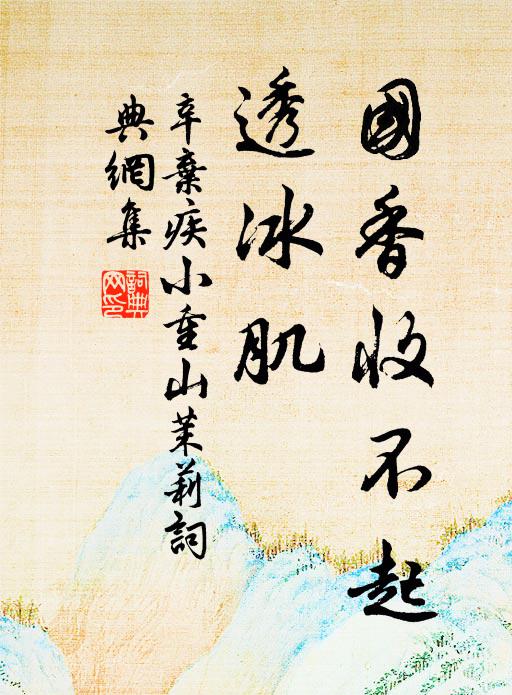 國香收不起
透冰肌
辛棄疾小重山茉莉詞
典網集
詞典網印